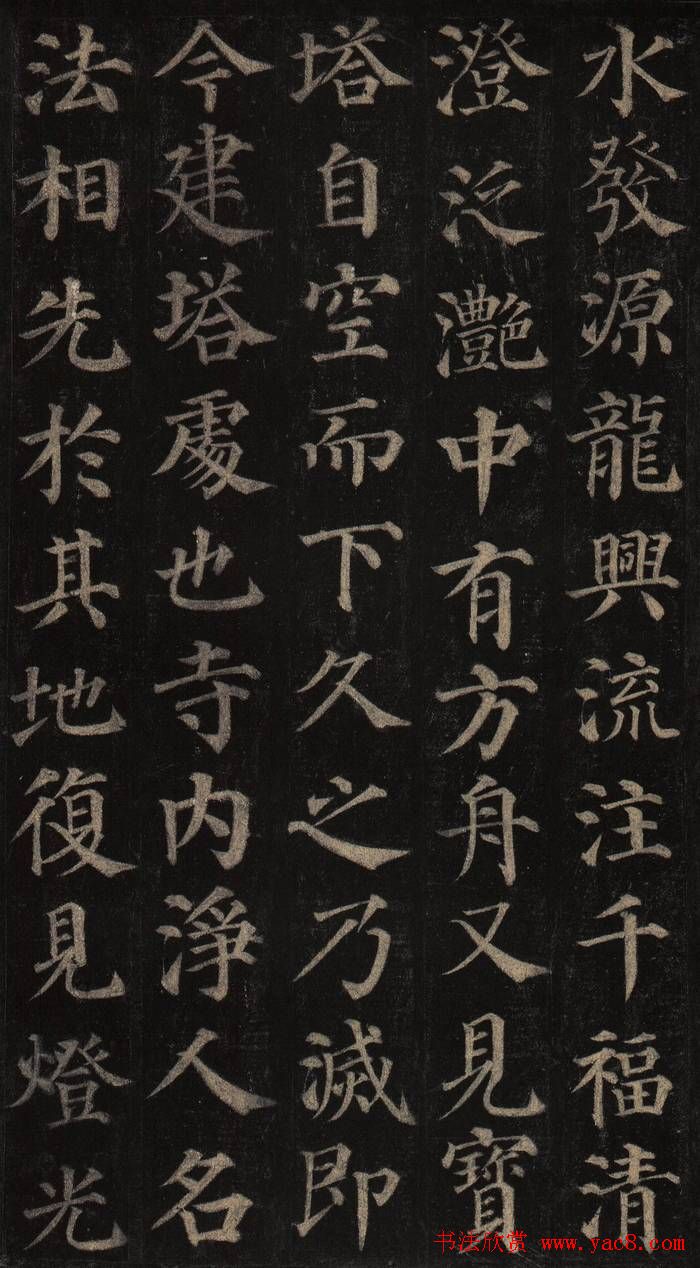 水發源龍興流注千福清
澄泛灔中有方舟又見寶
塔自空而下久之乃滅即
今建塔處也寺内淨人名
法相先於其地復見燈光
书法欣赏 www.yac8.com